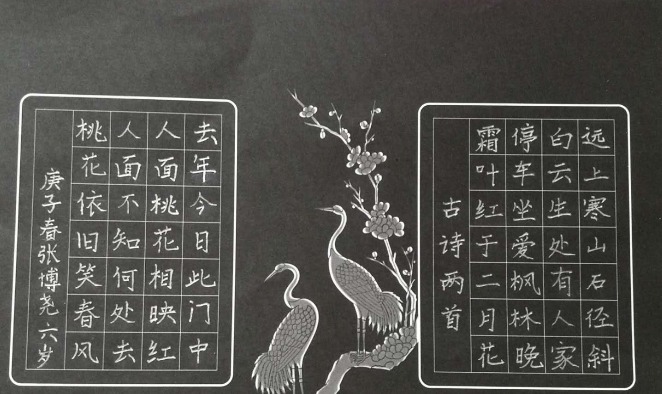 远上寒山石径斜
白云生处有人家
停车坐爱枫林晚
霜叶红于二月花
古诗两首
去年今日此门中
人面桃花相映红
人面不知何处去
桃花依旧笑春风
庚子春张博尧六岁